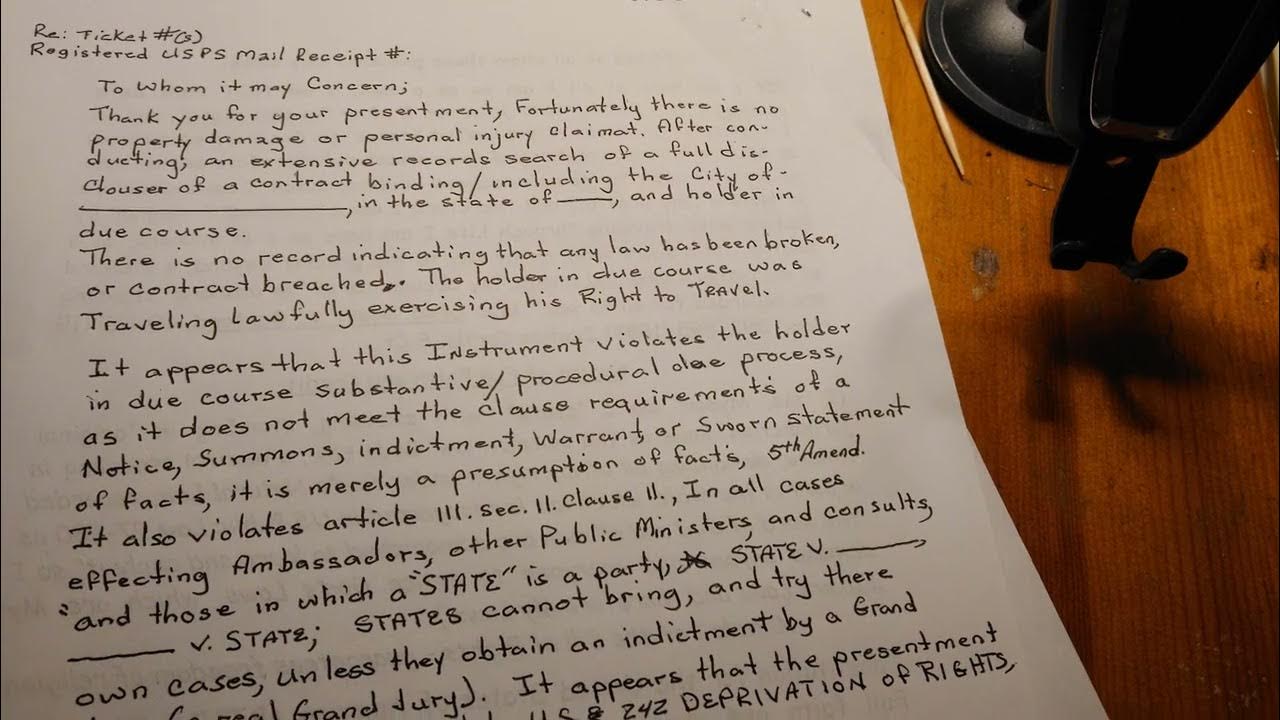 Re: Ticket #(s)
Registered USPS Mail Receipt #:
To Whom it may Concern;
Thank you for your presentment, Fortunately there is no
property damage or personal injury claimat. After con-
ducting, an extensive records search of a full dis-
clouser of a contract binding/including the City of-
____________________, in the state of ____, and holder in
due course.
There is no record indicating that any law has been broken,
or contract breached. The holder in due course was
Traveling Lawfully exercising his Right to TRAVEL.
It appears that this INstrument violates the holder
in due course substantive/procedural due process,
as it does not meet the clause requirements of a
Notice, Summons, indictment, Warrant, or Sworn statement
of facts, it is merely a presumption of facts, 5th Amend.
It also violates article III. Sec. II. Clause II., In all cases
effecting Ambassadors, other Public Ministers, and consults,
"and those in which a "STATE" is a party, STATE V. ________
________ V. STATE; STATES cannot bring, and try there
own cases, unless they obtain an indictment by a Grand
real Grand Jury). It appears that the presentment
242 DEPRIVATION of RIGHTS,